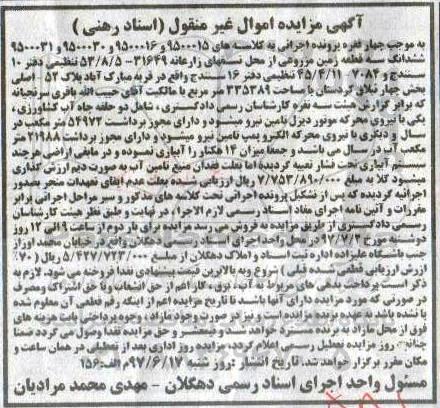 آگهی مزایده اموال غیر منقول (اسناد رهنی)
به موجب چهار فقره پرونده اجرائی به کلاسه های ۹۵۰۰۰۱۵ و ۹۵۰۰۰۱۶ و ۹۵۰۰۰۳۰ و ۹۵۰۰۰۳۱
ششدانگ سه قطعه زمین مزروعی از محل نسقهای زارعانه ۳۱۶۴۹-۵۳/۸/۵ تنظیمی دفتر ۱۰
سنندج و ۷۰۸۴-۴۵/۴/۱۱ تنظیمی دفتر ۱۶ سنندج واقع در قریه مبارک آباد پلاک ۵۲ اصلی
بخش چهار ثبتلاغ کردستان با مساحت ۳۳۵۳۸۹ متر مربع با مالکیت آقای حبیب الله باقری سرنجیانه
که برابر گزارش هیئت سه نفره کارشناسان رسمی دادگستری، شامل دو حلقه چاه آب کشاورزی،
یکی با نیروی محرکه موتور دیزل تامین نیرو میشود و دارای مجوز برداشت ۵۴۹۷۲ مکعب در
سال و دیگری با نیروی محرکه الکترو پمپ تامین نیرو میشود و دارای مجوز برداشت ۲۱۹۸۸ متر
مکعب آب در سال می باشند و جمعا میزان ۱۴ هکتار را آبیاری نموده و در مابقی اراضی هرچند
سیستم آبیاری تحت فشار تعبیه گردیده اما بعلت فقدان منبع تامین آب به صورت دیم ارزش گذاری
میشود کلا به مبلغ ۷/۷۵۳/۸۹۰/۰۰۰ ریال ارزیابی شده بعلت عدم ایفای تعهدات منجر بصدور
اجرائیه گردیده که پس از تشکیل پرونده اجرائی تحت کلاسه های مذکور و سیر مراحل اجرائی برابر
مقررات و آئین نامه اجرای مفاد اسناد رسمی لازم الاجرا، در نهایت و طبق نظر هیئت کارشناسان
رسمی دادگستری از طریق مزایده به فروش می رسد مزایده برای بار دوم از ساعت ۹ الی ۱۲ روز
دوشنبه مورخ ۹۷/۷/۲ در محل واحد اجرای اسناد رسمی دهگلان واقع در خیابان محمد اوراز
جنب باشگاه علیزاده اداره ثبت اسناد و املاک دهگلان از مبلغ ۵/۴۲۷/۷۲۳/۰۰۰ ریال (۷۰٪
ارزش ارزیابی قطعی شده قبلی) شروع و به بالاترین قیمت پیشنهادی نقدا فروخته می شود. لازم به
ذکر است پرداخت بدهی های مربوط به آب، برق، گاز اعم از حق انشعاب و یا حق اشتراک و مصرف
در صورتی که مورد مزایده دارای آنها باشد تا تاریخ مزایده اعم از اینکه رقم قطعی آن معلوم شده
یا نشده باشد به عهده برنده مزایده است و نیز در صورت وجود مازاد، وجوه پرداختی بابت هزینه های
فوق از محل مازاد به برنده مسترد خواهد شد و نیمعشر و حق مزایده نقدا وصول می گردد ضمنا
چنانچه روز مزایده تعطیل رسمی اعلام گردد، مزایده روز اداری بعد از تعطیلی در همان ساعت و
مکان مقرر برگزار خواهد شد. تاریخ انتشار: روز شنبه ۹۷/۶/۱۷ م الف:۱۵۶
مسئول واحد اجرای اسناد رسمی دهگلان - مهدی محمد مرادیان